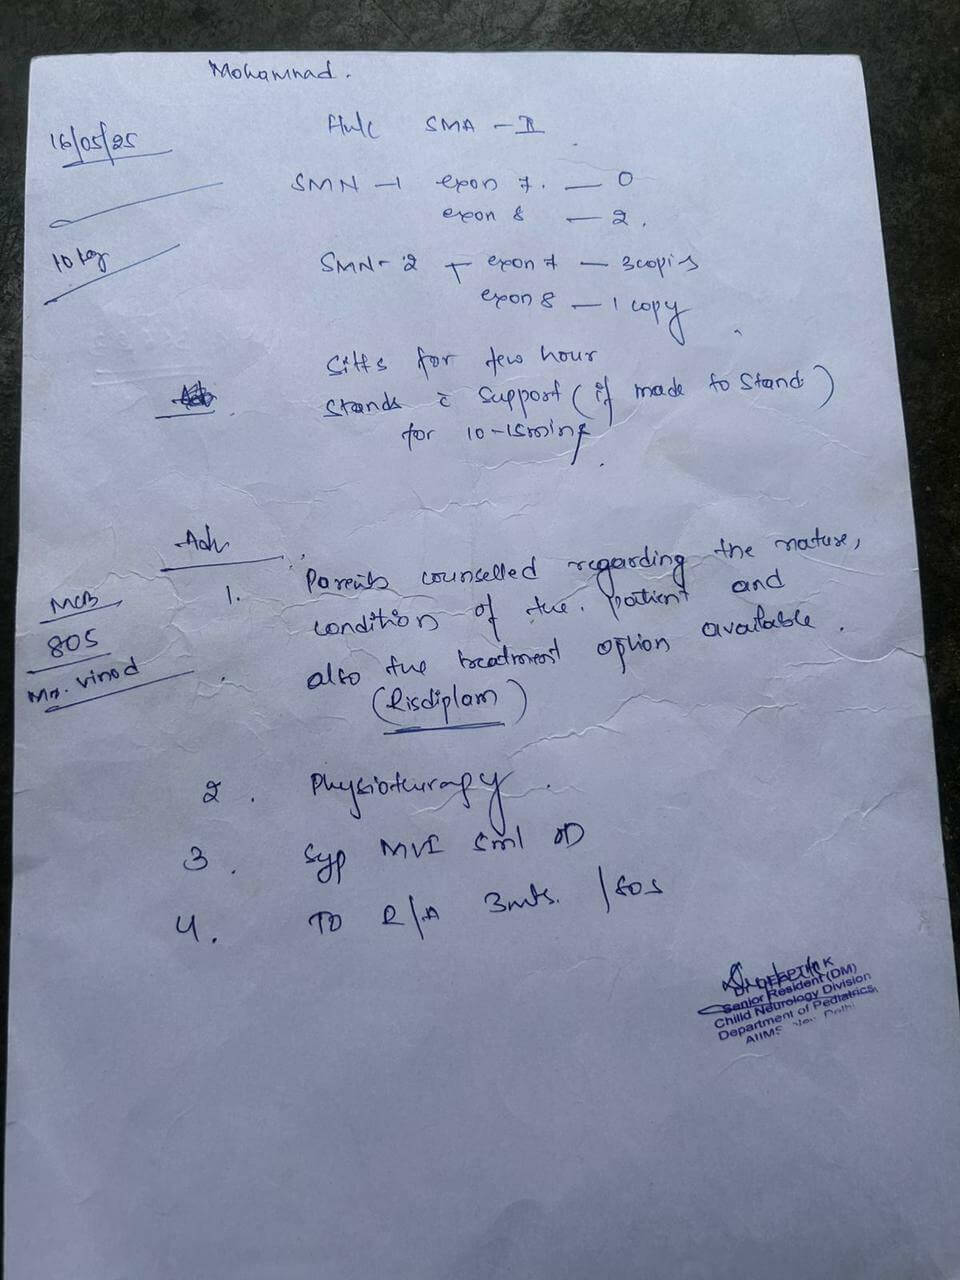 Mohamnad.
16/05/25
F/u/c SMA - II
SMN - 1 exon 7. — 0
exon 8 — 2.
10 kg
SMN - 2 exon 7 — 3 copies
exon 8 — 1 copy
Sitts for few hour
stands c̄ support (if made to stand)
for 10-15 mins.
Adv
1. Parents counselled regarding the nature,
condition of the patient and
also the treatment option available.
(Risdiplam)
MCB
805
Mr. Vinod
2. Physiotherapy.
3. Syp MVI 5ml OD
4. To R/A 3mts. /SOS
K
Senior Resident (DM)
Child Neurology Division
Department of Pediatrics,
AIIMS New Delhi